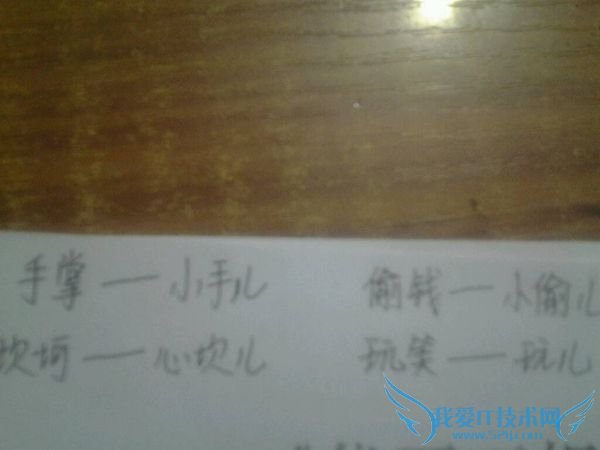 手掌——小手儿 偷钱——小偷儿
坎坷——心坎儿 玩笑——玩儿
我爱IT技术网